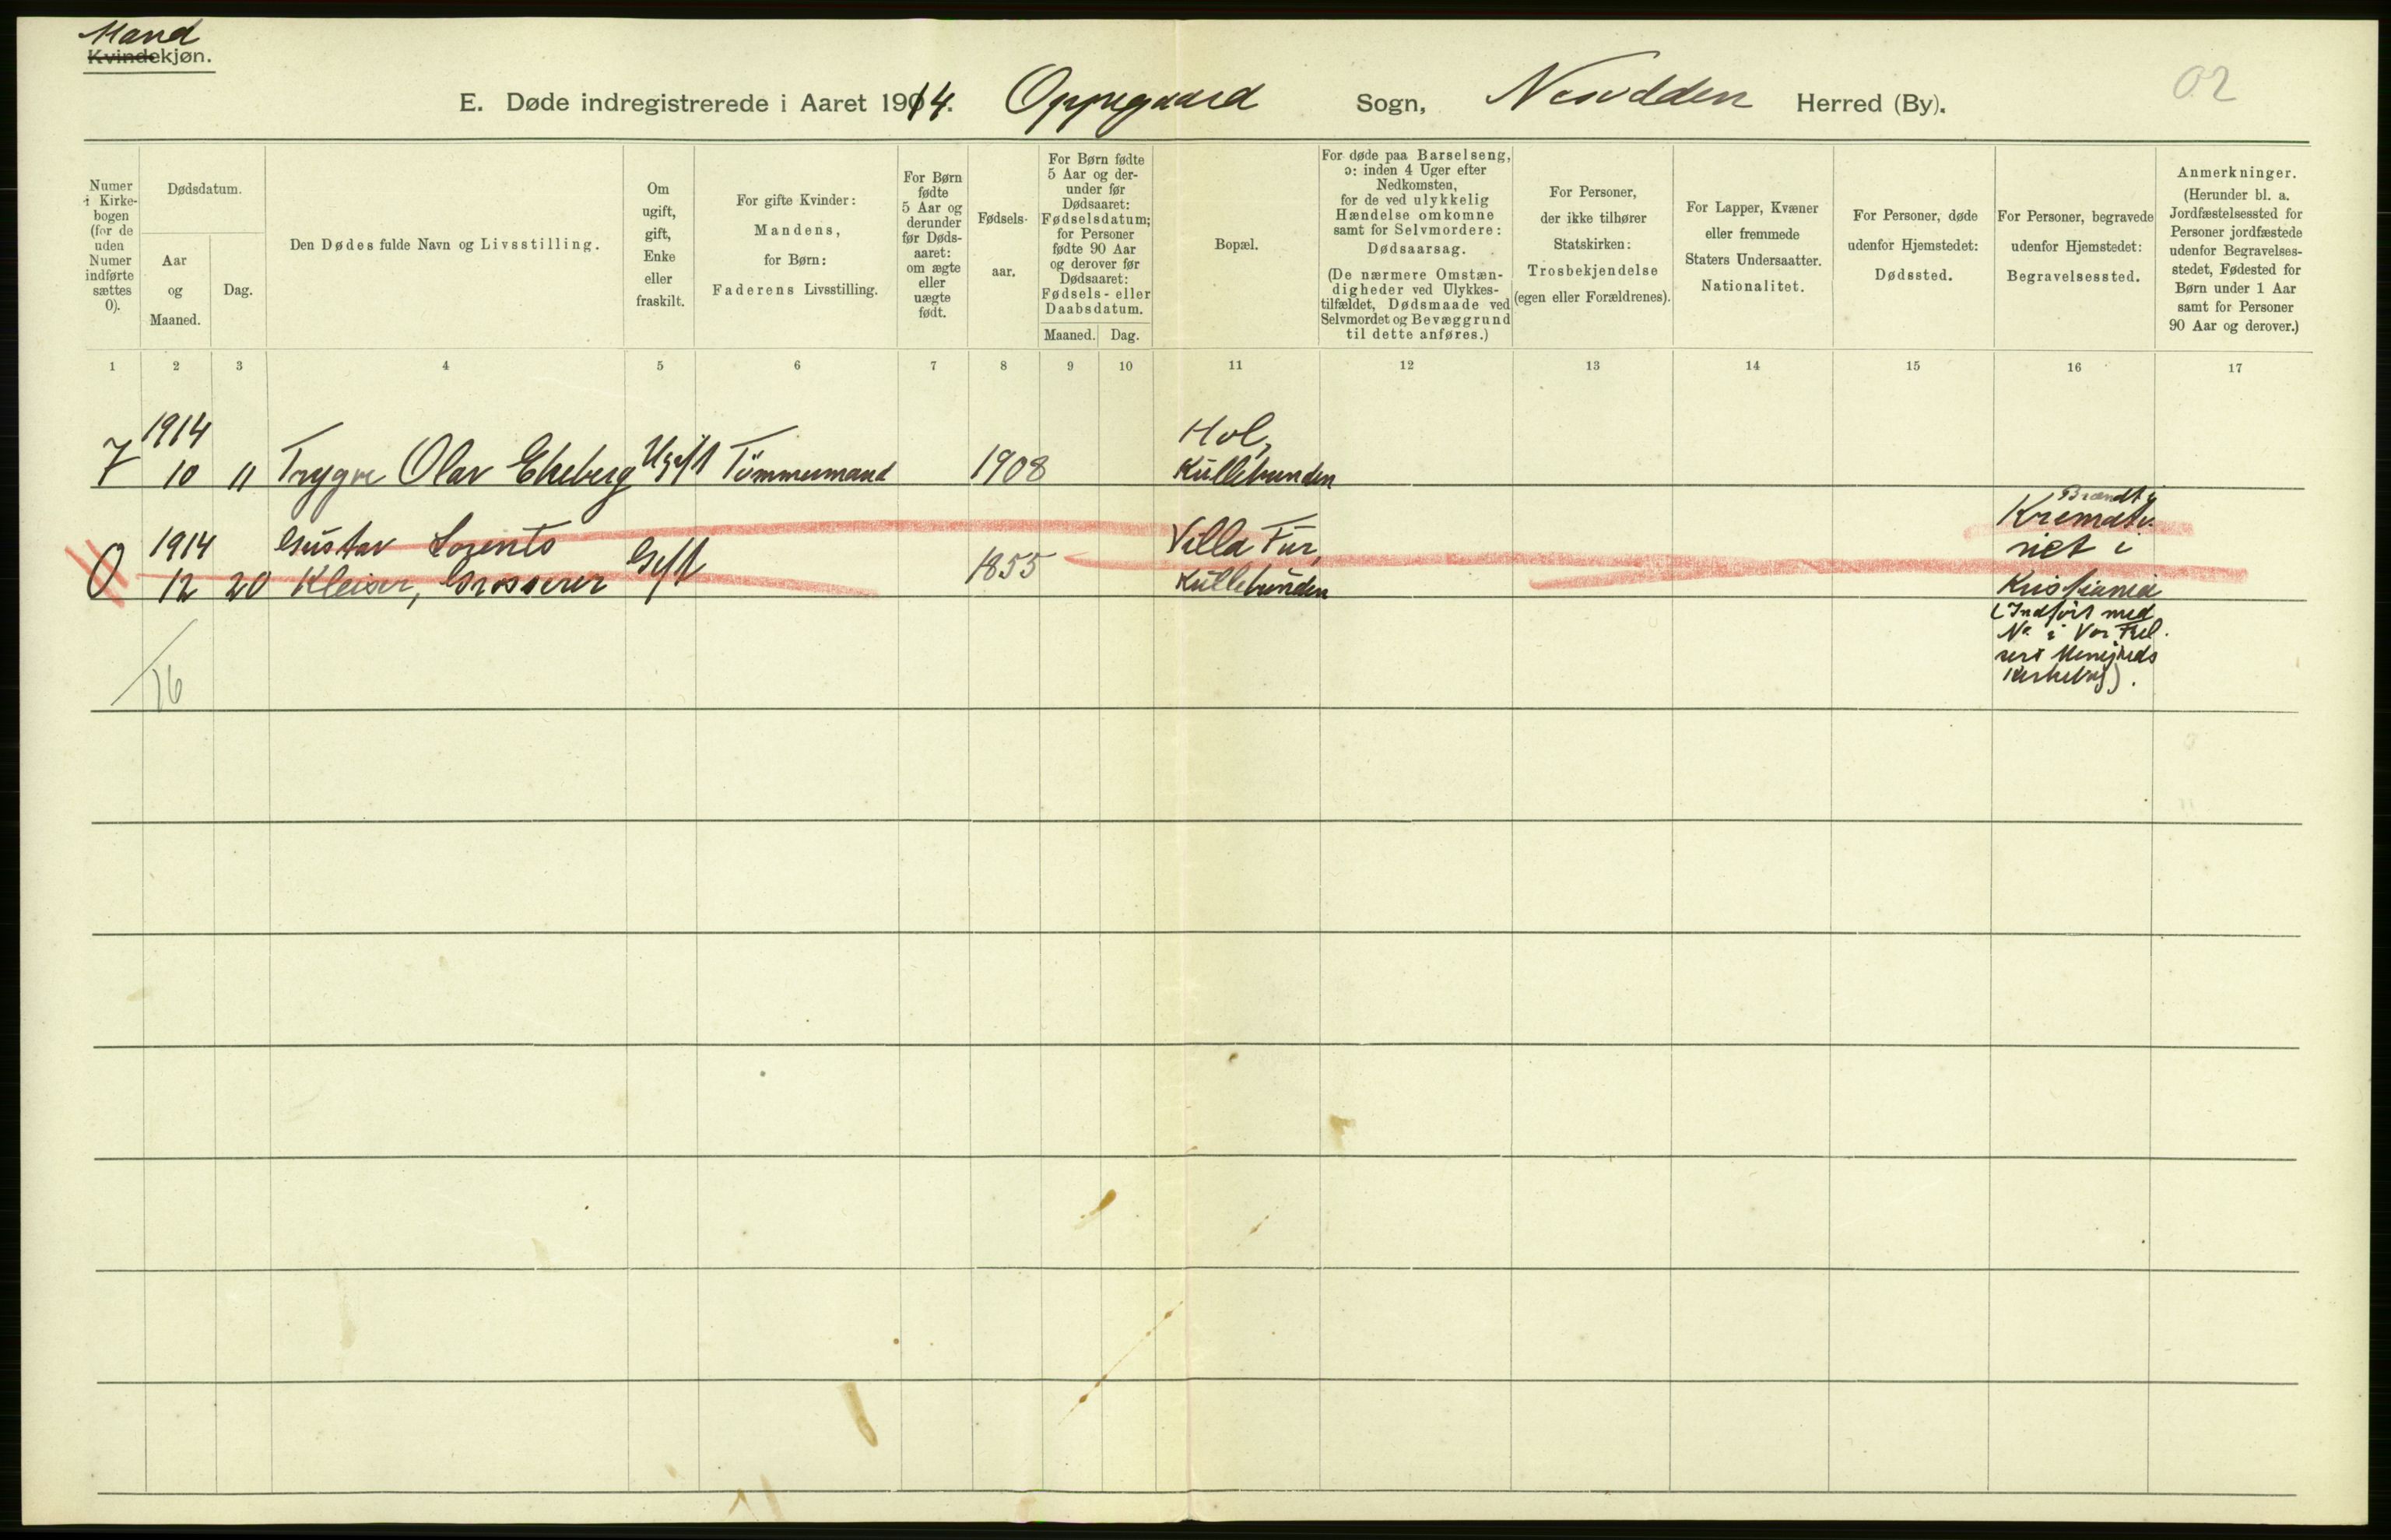 Mand
Kvindekjøn.
E. Døde indregistrerede i Aaret 1914. Oppegaard Sogn, Nesodden Herred (By).
02
Numer
i Kirke-
bogen
(for de
uden
Numer
indførte
sættes
0).
Dødsdatum.
Aar
og
Maaned.
Dag.
Den Dødes fulde Navn og Livsstilling.
Om
ugift,
gift,
Enke
eller
fraskilt.
For gifte Kvinder:
Mandens,
for Børn:
Faderens Livsstilling.
For Børn
fødte
5 Aar og
derunder
før Døds-
aaret:
om ægte
eller
uægte
født.
Fødsels-
aar.
For Børn fødte
5 Aar og der-
under før
Dødsaaret:
Fødselsdatum;
for Personer
fødte 90 Aar
og derover før
Dødsaaret:
Fødsels- eller
Daabsdatum.
Maaned. Dag.
Bopæl.
For døde paa Barselseng,
ɔ: inden 4 Uger efter
Nedkomsten,
for de ved ulykkelig
Hændelse omkomne
samt for Selvmordere:
Dødsaarsag.
(De nærmere Omstæn-
digheder ved Ulykkes-
tilfældet, Dødsmaade ved
Selvmordet og Bevæggrund
til dette anføres.)
For Personer,
der ikke tilhører
Statskirken:
Trosbekjendelse
(egen eller Forældrenes).
For Lapper, Kvæner
eller fremmede
Staters Undersaatter.
Nationalitet.
For Personer, døde
udenfor Hjemstedet:
Dødssted.
For Personer, begravede
udenfor Hjemstedet:
Begravelsessted.
Anmerkninger.
(Herunder bl. a.
Jordfæstelsessted for
Personer jordfæstede
udenfor Begravelses-
stedet, Fødested for
Børn under 1 Aar
samt for Personer
90 Aar og derover.)
1 2 3 4 5 6 7 8 9 10 11 12 13 14 15 16 17
1914 Hol,
7 10 11 Trygve Olav Ekeberg Ugift Tömmermand 1908 Kullebunden
Brændt i
1914 Gustav Lorents Villa Fur, Kremato-
riet i
0 12 20 Kleiser, Grosserer Gift 1855 Kullebunden Kristiania
(Indført med
No i Vor Frel-
sers Menigheds
Kirkebog).
16